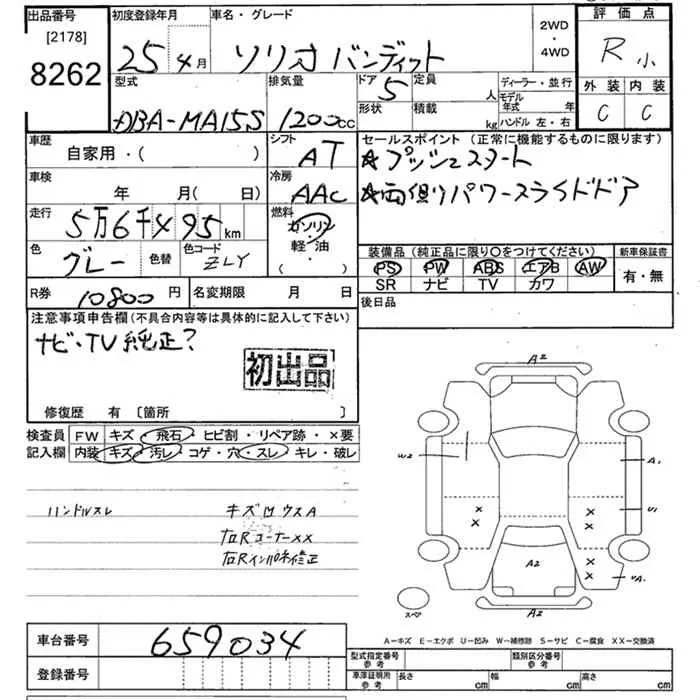 出品番号 初度登録年月 車名・グレード 2WD・4WD 評価点
[2178]
8262
25年4月 ソリオ バンディット R 小
型式 排気量 ドア 定員 ディーラー・並行 外装 内装
DBA-MA15S 1200cc 5 人 モデル年式 年 C C
形状 積載 kg ハンドル 左・右
車歴 シフト セールスポイント (正常に機能するものに限ります)
自家用・( ) AT ☆プッシュスタート
車検 冷房
年 月( 日) AAC ☆両側パワースライドドア
走行 燃料
5万6千495km ガソリン・軽油・( )
色 グレー 色替 色コード ZLY
装備品 (純正品に限り○をつけてください) 新車保証書
PS PW ABS エアB AW 有・無
SR ナビ TV カワ
R券 10800円 名変期限 月 日 後日品
注意事項申告欄(不具合内容等は具体的に記入して下さい)
ナビ・TV純正?
初出品
修復歴 有 〔箇所 〕
検査員 FW キズ・飛石・ヒビ割・リペア跡・×要
記入欄 内装 キズ・汚レ・コゲ・穴・スレ・キレ・破レ
ハンドルスレ キズ凹ウスA
右Rコーナー××
右Rインパネ修正
A2
W2
A1
U1
A2
A2
スペア
車台番号 659034
A-キズ E-エクボ U-凹み W-補修跡 S-サビ C-腐食 XX-交換済
登録番号
型式指定番号 参考 類別区分番号 参考
車庫証明所 参考 長さ cm 幅 cm 高さ cm